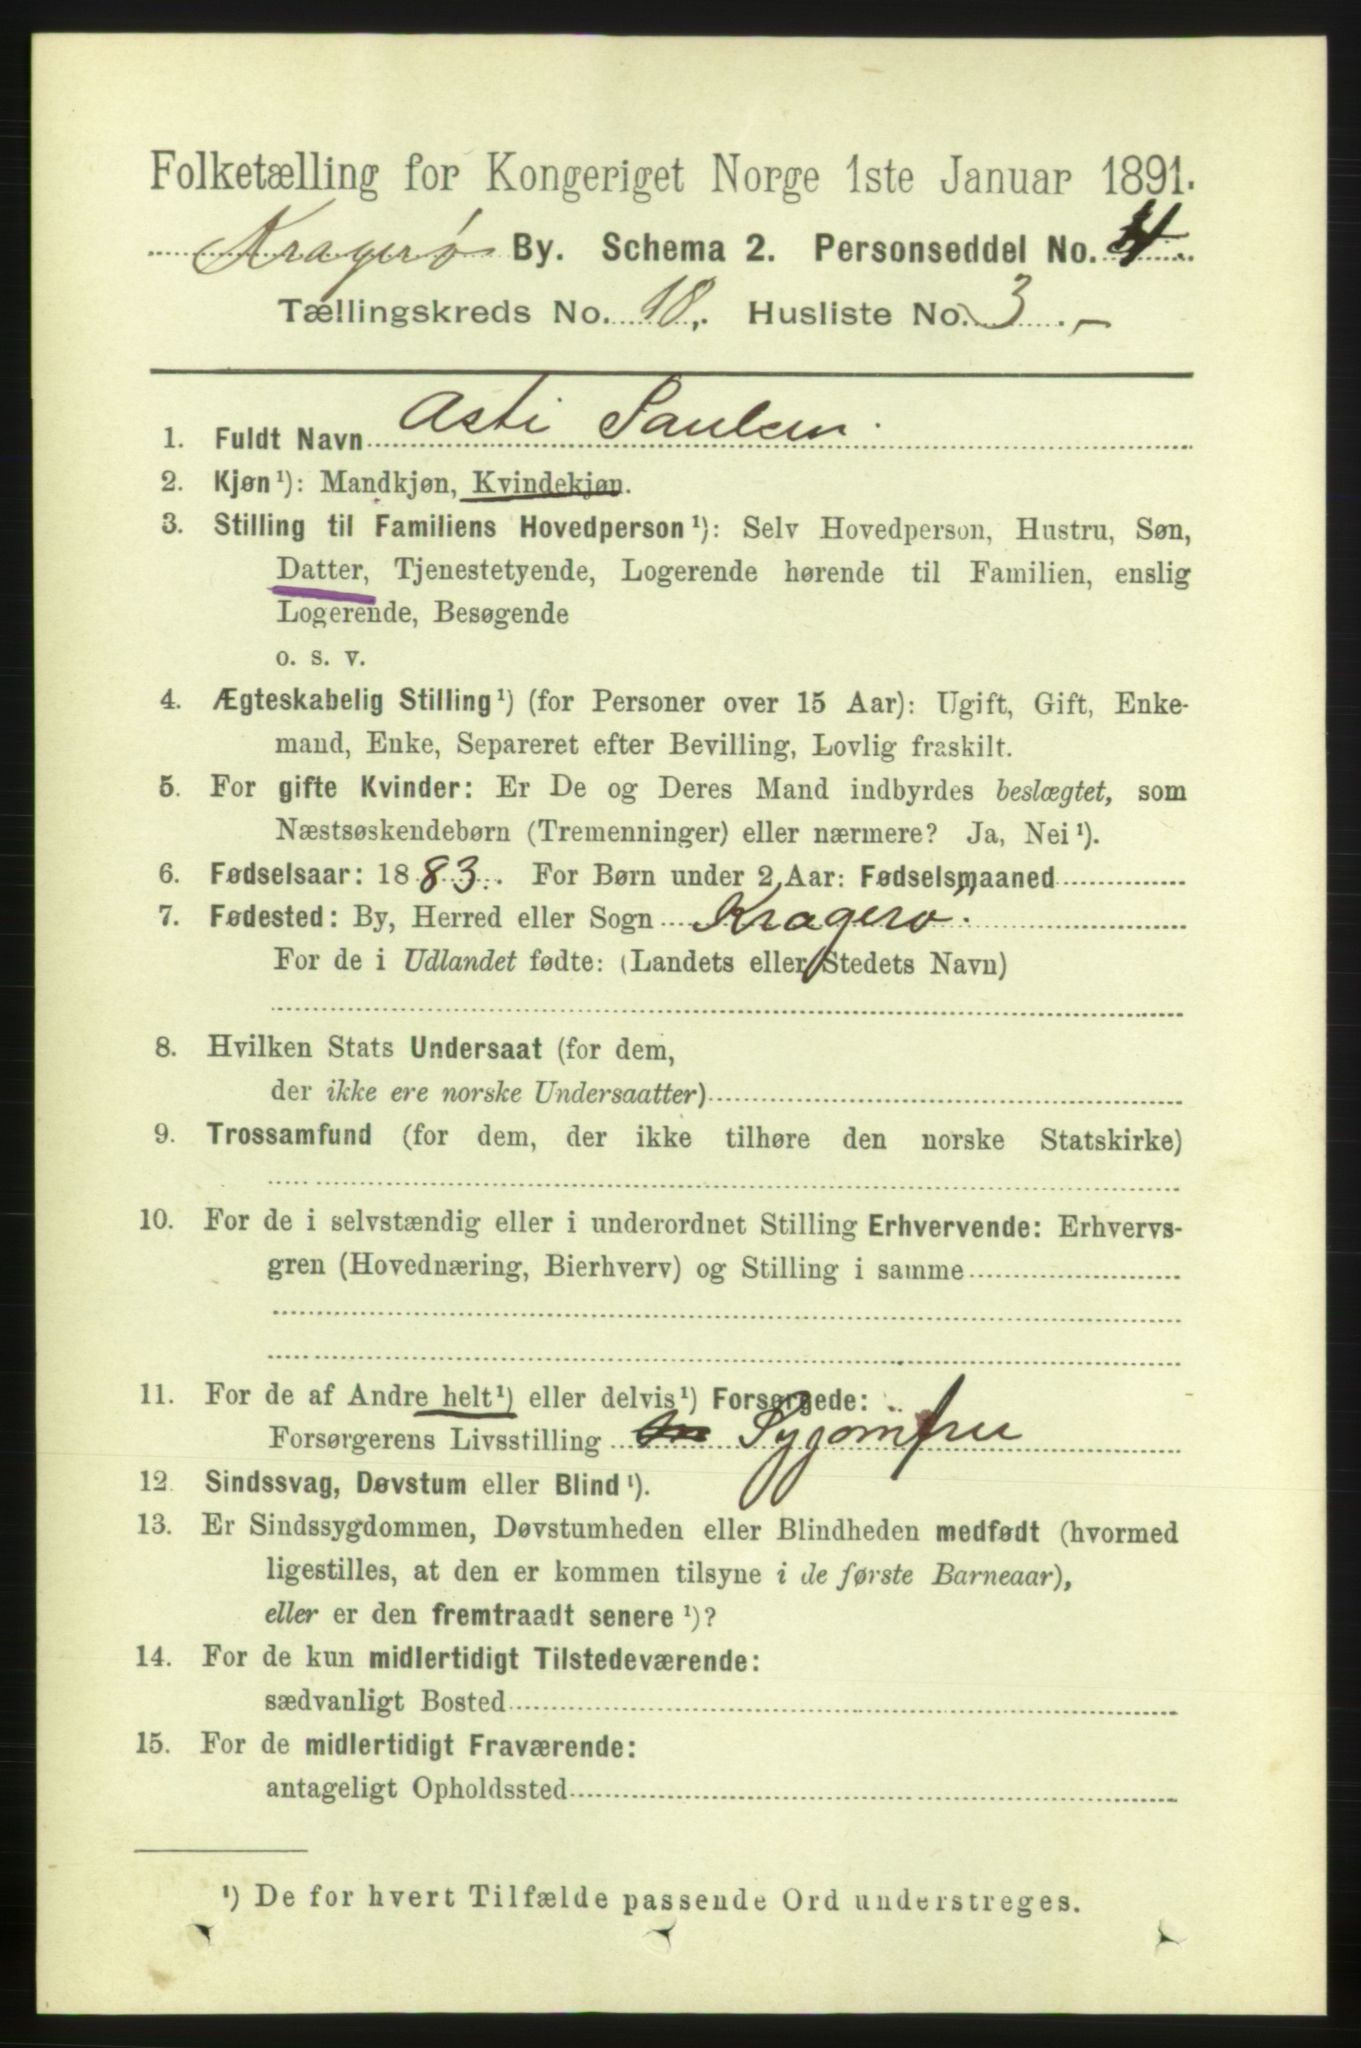 Folketælling for Kongeriget Norge 1ste Januar 1891.
Kragerø By. Schema 2. Personseddel No. 4.
Tællingskreds No. 18. Husliste No. 3.
1. Fuldt Navn Asti Paulsen.
2. Kjøn¹): Mandkjøn, Kvindekjøn.
3. Stilling til Familiens Hovedperson¹): Selv Hovedperson, Hustru, Søn,
Datter, Tjenestetyende, Logerende hørende til Familien, enslig
Logerende, Besøgende
o. s. v.
4. Ægteskabelig Stilling¹) (for Personer over 15 Aar): Ugift, Gift, Enke-
mand, Enke, Separeret efter Bevilling, Lovlig fraskilt.
5. For gifte Kvinder: Er De og Deres Mand indbyrdes beslægtet, som
Næstsøskendebørn (Tremenninger) eller nærmere? Ja, Nei¹).
6. Fødselsaar: 1883. For Børn under 2 Aar: Fødselsmaaned
7. Fødested: By, Herred eller Sogn Kragerø.
For de i Udlandet fødte: (Landets eller Stedets Navn)
8. Hvilken Stats Undersaat (for dem,
der ikke ere norske Undersaatter)
9. Trossamfund (for dem, der ikke tilhøre den norske Statskirke)
10. For de i selvstændig eller i underordnet Stilling Erhvervende: Erhvervs-
gren (Hovednæring, Bierhverv) og Stilling i samme
11. For de af Andre helt¹) eller delvis¹) Forsørgede:
Forsørgerens Livsstilling Sygomfru
12. Sindssvag, Døvstum eller Blind¹).
13. Er Sindssygdommen, Døvstumheden eller Blindheden medfødt (hvormed
ligestilles, at den er kommen tilsyne i de første Barneaar),
eller er den fremtraadt senere¹)?
14. For de kun midlertidigt Tilstedeværende:
sædvanligt Bosted
15. For de midlertidigt Fraværende:
antageligt Opholdssted
¹) De for hvert Tilfælde passende Ord understreges.